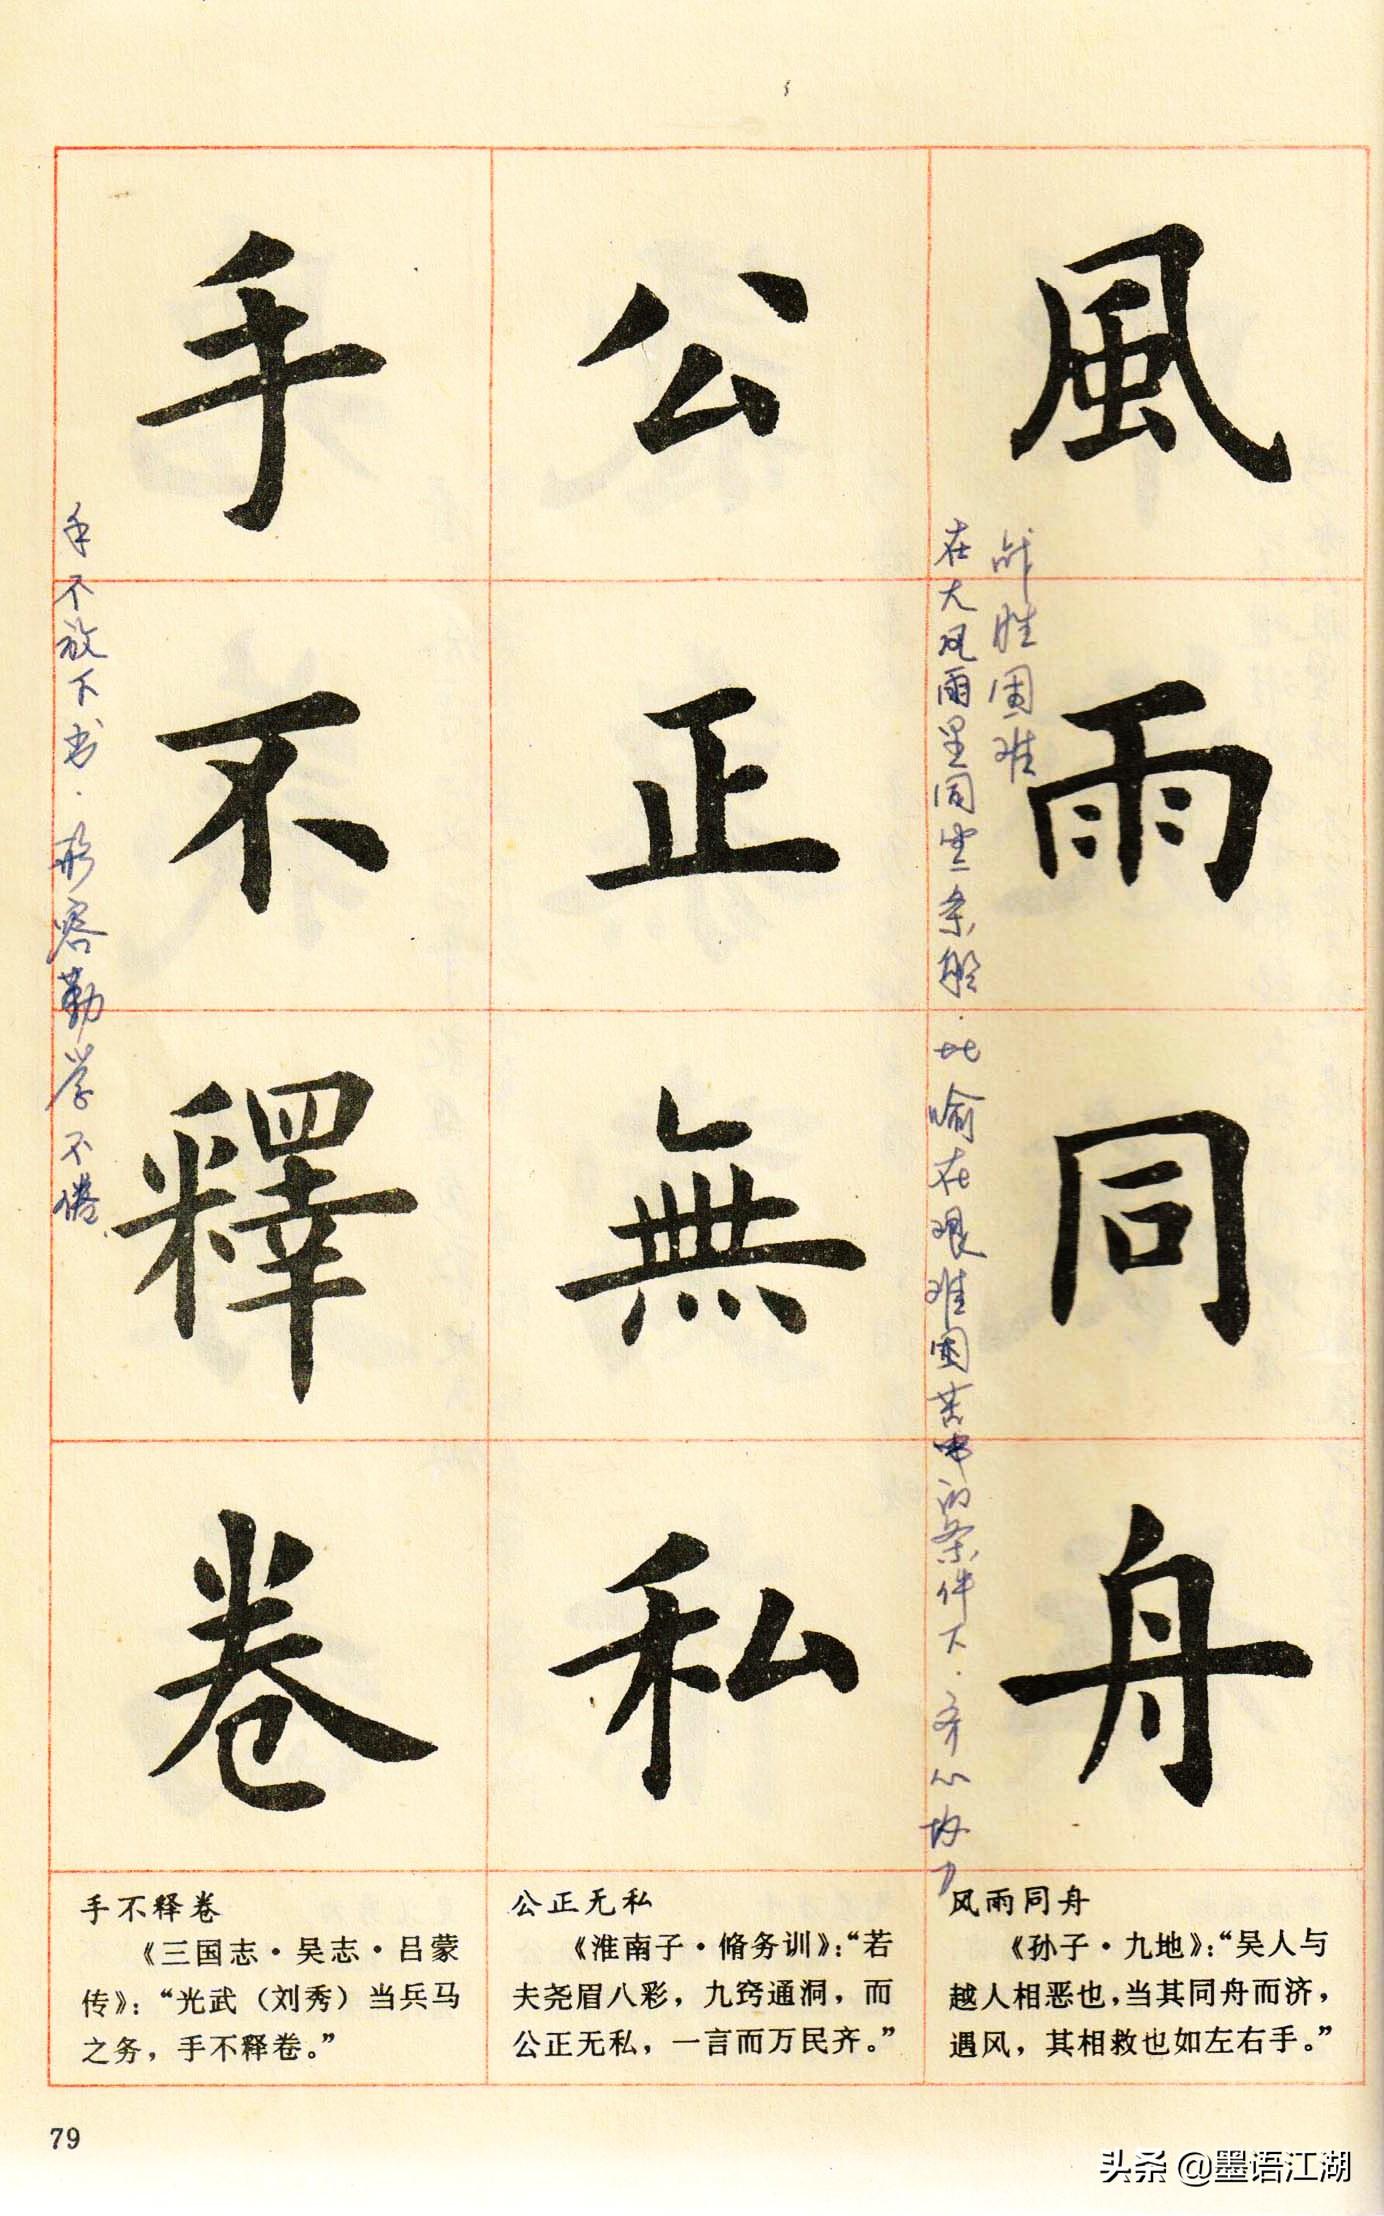 風雨同舟
公正無私
手不釋卷
在大风雨里同坐一条船.比喻在艰难困苦中的条件下.齐心协力
战胜困难
手不放下书.形容勤学不倦.
手不释卷
《三国志·吴志·吕蒙
传》：“光武（刘秀）当兵马
之务，手不释卷。”
公正无私
《淮南子·脩务训》：“若
夫尧眉八彩，九窍通洞，而
公正无私，一言而万民齐。”
风雨同舟
《孙子·九地》：“吴人与
越人相恶也，当其同舟而济，
遇风，其相救也如左右手。”
79
头条 @墨语江湖